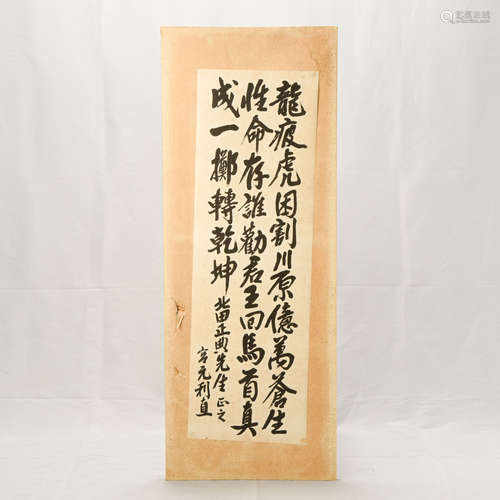 龍疲虎困割川原億萬蒼生
性命存誰勸君王回馬首真
成一擲轉乾坤
北田正典先生正之
宮元利直